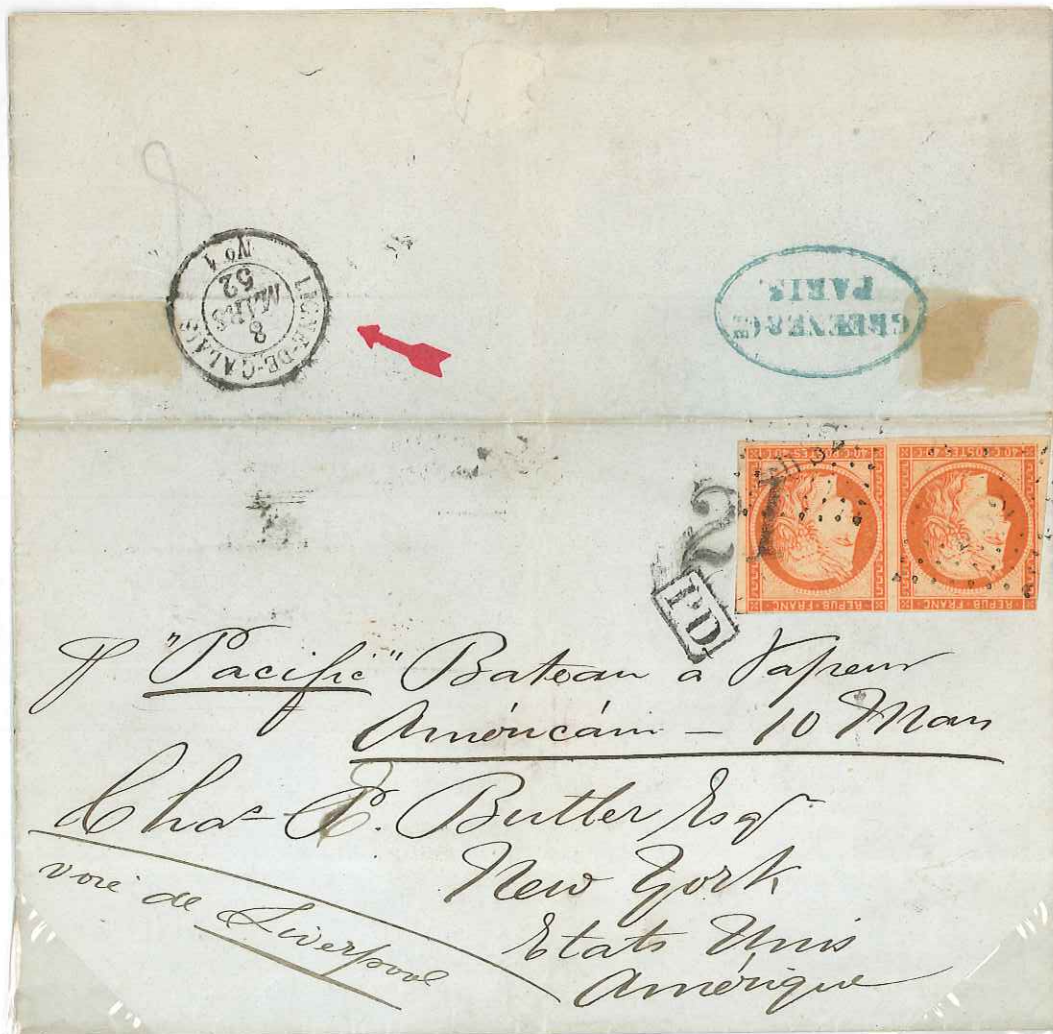 LIGNE-DE-CALAIS
8
MARS
52
No 1
GREENE & CIE
PARIS
40 C POSTES 40 C
REPUB FRANC
40 C POSTES 40 C
REPUB FRANC
21
PD
"Pacific" Bateau à Vapeur
Américain — 10 Mars
Chas E. Butler Esqr
New York
Etats Unis
Amérique
voie de Liverpool